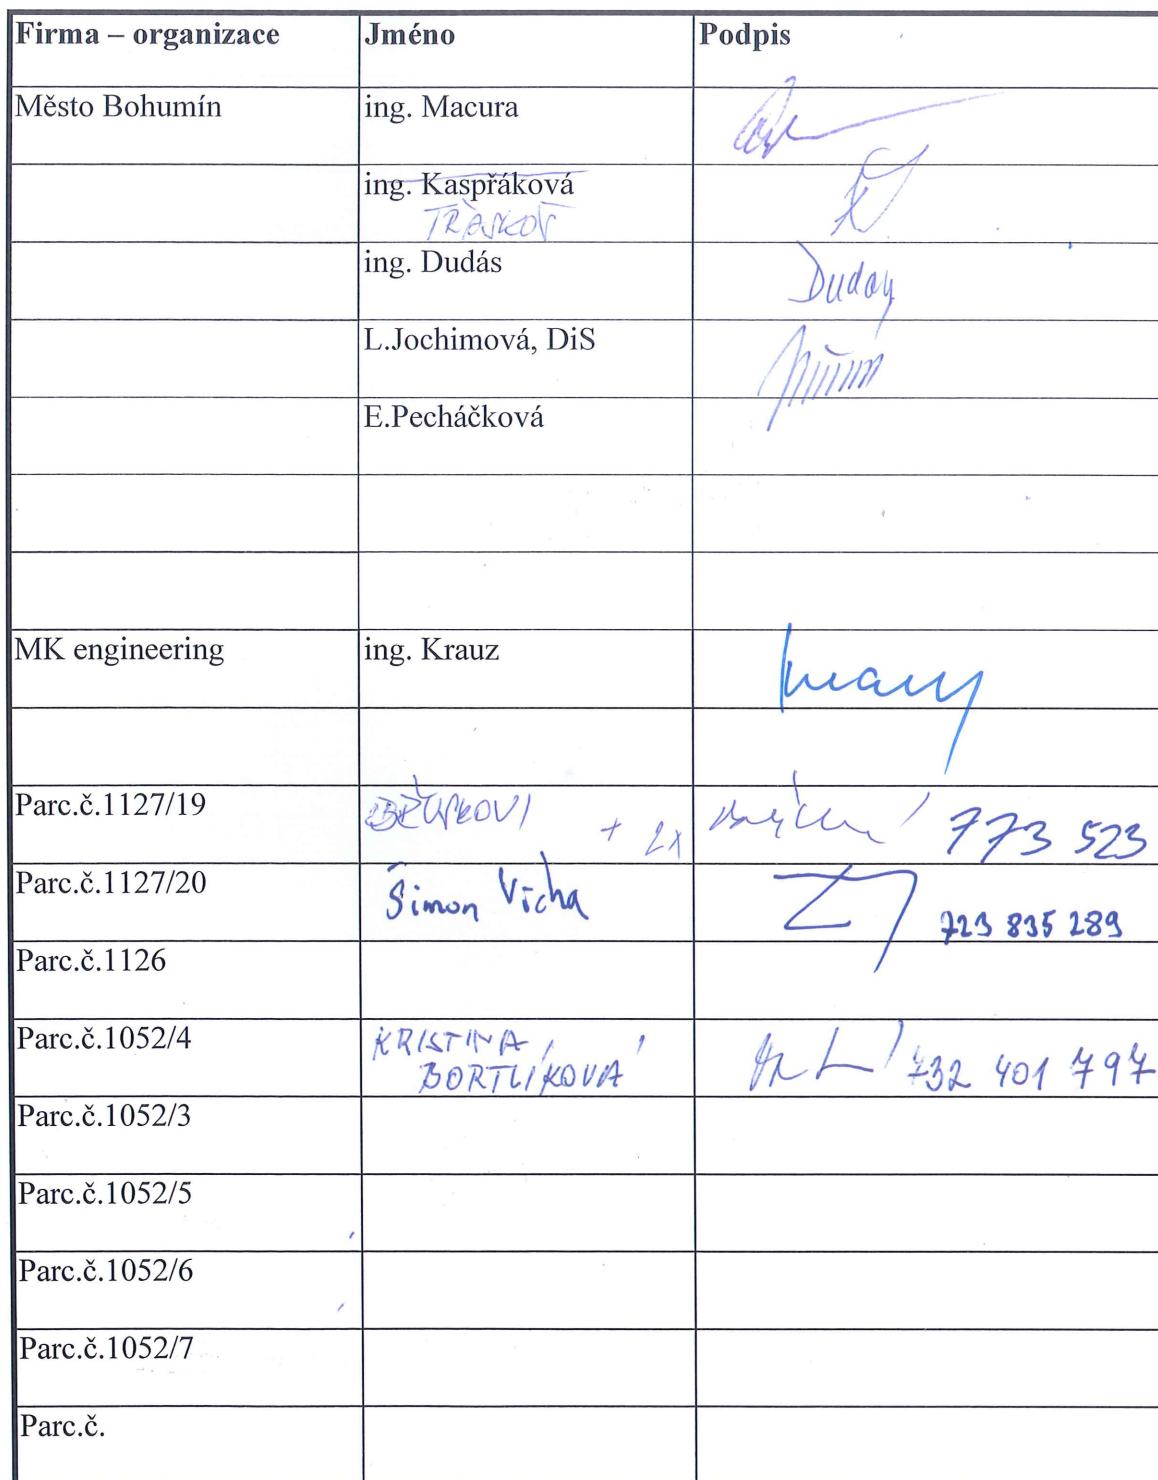 Firma – organizace Jméno Podpis
Město Bohumín ing. Macura
ing. Kaspřáková
ing. Dudás
L.Jochimová, DiS
E.Pecháčková
MK engineering ing. Krauz
Parc.č.1127/19 + 2x 773 523
Parc.č.1127/20 Šimon Vícha 723 835 289
Parc.č.1126
Parc.č.1052/4 KRISTINA
BORTLÍKOVÁ 732 401 797
Parc.č.1052/3
Parc.č.1052/5
Parc.č.1052/6
Parc.č.1052/7
Parc.č.